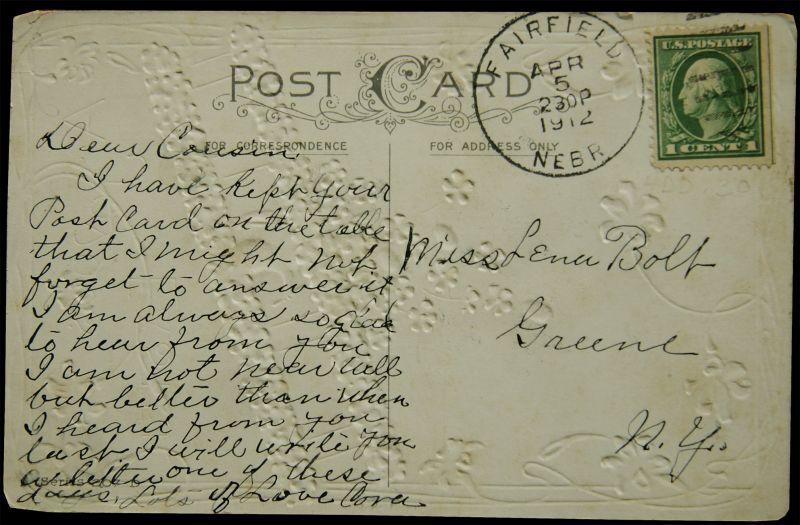 POST CARD
FOR CORRESPONDENCE
FOR ADDRESS ONLY
FAIRFIELD
APR
5
230P
1912
NEBR.
U.S. POSTAGE
1 CENT 1
Dear Cousin.
I have kept your
Post Card on the table
that I might not
forget to answer it
I am always so glad
to hear from you
I am not near well
but better than when
I heard from you
last I will write you
a letter one of these
days. Lots of Love Cora
Miss Lena Bolt
Greene
N. Y.